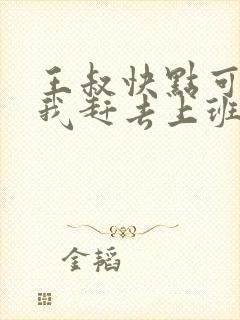 王叔快點可
我赶去上班
金韬